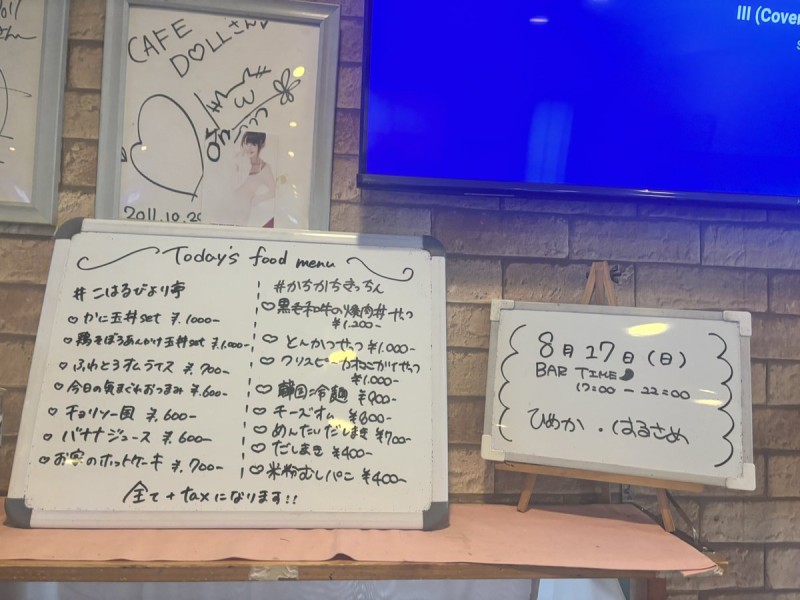 CAFE
DOLLさん♡
2011.10.20
III (Cover
Today's food menu
#こはるびより亭
♡かに玉丼set ¥1000-
♡鶏そぼろあんかけ玉丼set ¥1000-
♡ふわとろオムライス ¥900-
♡今日の気まぐれおつまみ ¥600-
♡チョリソー風 ¥600-
♡バナナジュース ¥600-
♡お家のホットケーキ ¥700-
全て+taxになります!!
#かちかちきっちん
♡黒毛和牛の焼肉丼せっつ
¥1.200-
♡とんかつせっつ ¥1.000-
♡クリスピー
¥1.000-
♡韓国冷麺 ¥900-
♡チーズオム ¥800-
♡めんたいだしまき ¥700-
♡だしまき ¥400-
♡米粉むしパンこ ¥400-
8月17日(日)
BAR TIME
17:00 - 22:00
ひめか・はるさめ